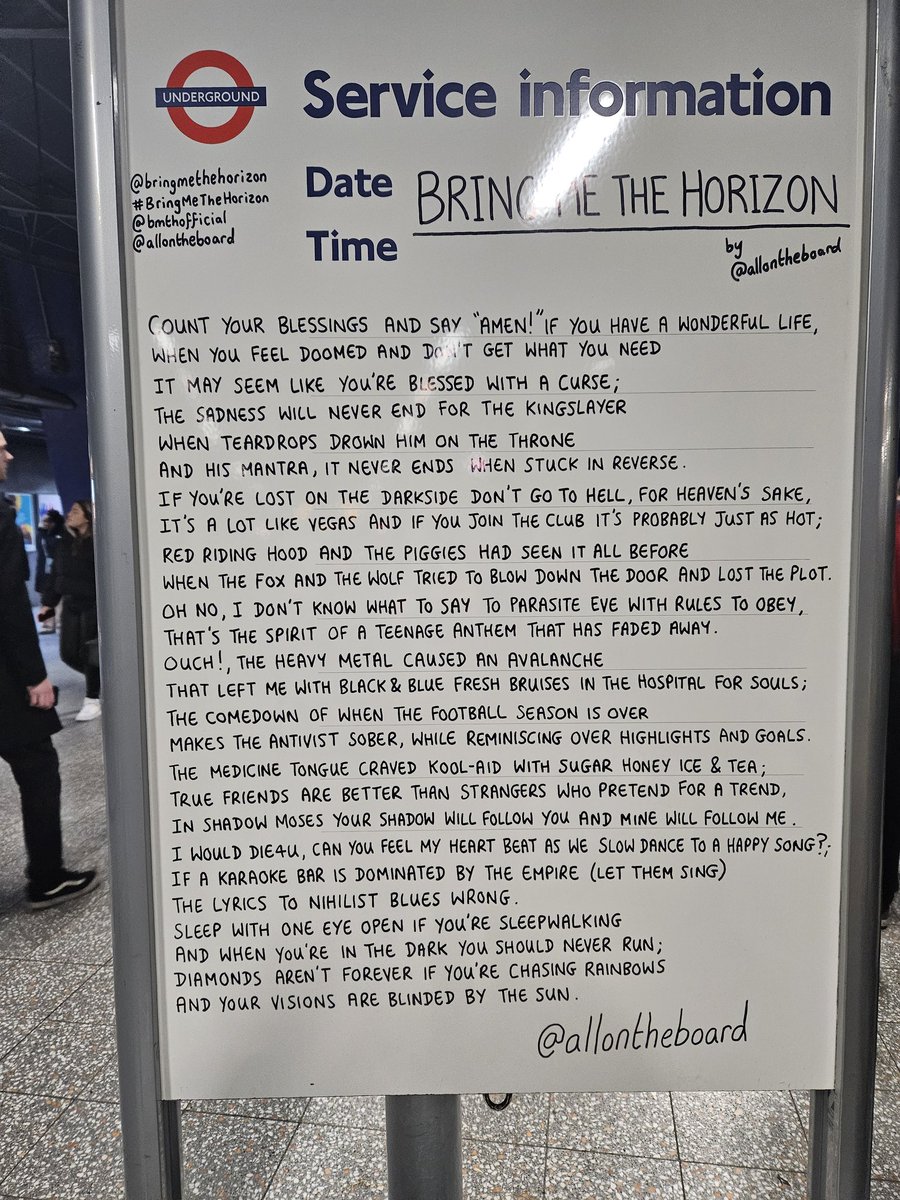 UNDERGROUND
Service information
@bringmethehorizon
#BringMeTheHorizon
@bmthofficial
@allontheboard
Date
Time
BRING ME THE HORIZON
by
@allontheboard
COUNT YOUR BLESSINGS AND SAY "AMEN!" IF YOU HAVE A WONDERFUL LIFE,
WHEN YOU FEEL DOOMED AND DON'T GET WHAT YOU NEED
IT MAY SEEM LIKE YOU'RE BLESSED WITH A CURSE;
THE SADNESS WILL NEVER END FOR THE KINGSLAYER
WHEN TEARDROPS DROWN HIM ON THE THRONE
AND HIS MANTRA, IT NEVER ENDS WHEN STUCK IN REVERSE.
IF YOU'RE LOST ON THE DARKSIDE DON'T GO TO HELL, FOR HEAVEN'S SAKE,
IT'S A LOT LIKE VEGAS AND IF YOU JOIN THE CLUB IT'S PROBABLY JUST AS HOT;
RED RIDING HOOD AND THE PIGGIES HAD SEEN IT ALL BEFORE
WHEN THE FOX AND THE WOLF TRIED TO BLOW DOWN THE DOOR AND LOST THE PLOT.
OH NO, I DON'T KNOW WHAT TO SAY TO PARASITE EVE WITH RULES TO OBEY,
THAT'S THE SPIRIT OF A TEENAGE ANTHEM THAT HAS FADED AWAY.
OUCH!, THE HEAVY METAL CAUSED AN AVALANCHE
THAT LEFT ME WITH BLACK & BLUE FRESH BRUISES IN THE HOSPITAL FOR SOULS;
THE COMEDOWN OF WHEN THE FOOTBALL SEASON IS OVER
MAKES THE ANTIVIST SOBER, WHILE REMINISCING OVER HIGHLIGHTS AND GOALS.
THE MEDICINE TONGUE CRAVED KOOL-AID WITH SUGAR HONEY ICE & TEA;
TRUE FRIENDS ARE BETTER THAN STRANGERS WHO PRETEND FOR A TREND,
IN SHADOW MOSES YOUR SHADOW WILL FOLLOW YOU AND MINE WILL FOLLOW ME.
I WOULD DIE4U, CAN YOU FEEL MY HEART BEAT AS WE SLOW DANCE TO A HAPPY SONG?;
IF A KARAOKE BAR IS DOMINATED BY THE EMPIRE (LET THEM SING)
THE LYRICS TO NIHILIST BLUES WRONG.
SLEEP WITH ONE EYE OPEN IF YOU'RE SLEEPWALKING
AND WHEN YOU'RE IN THE DARK YOU SHOULD NEVER RUN;
DIAMONDS AREN'T FOREVER IF YOU'RE CHASING RAINBOWS
AND YOUR VISIONS ARE BLINDED BY THE SUN.
@allontheboard